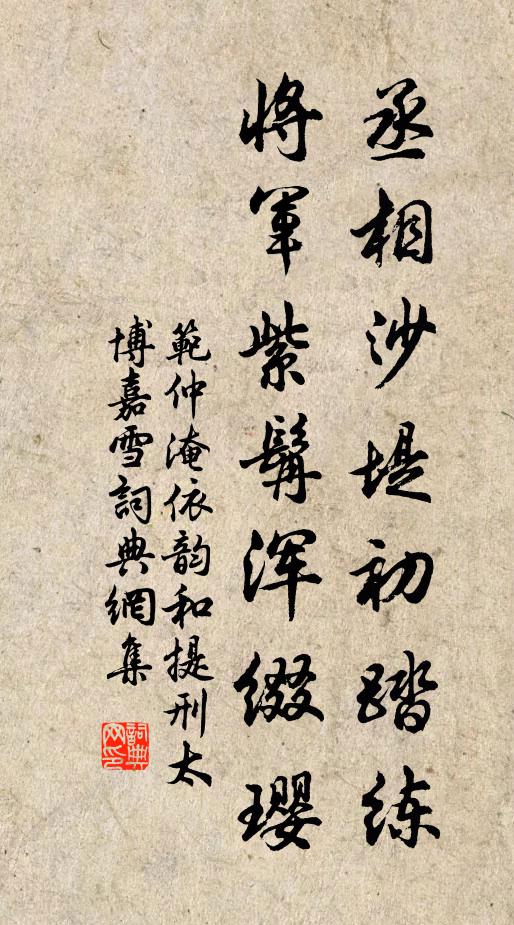 丞相沙堤初踏练
将军紫髯浑缀璎
範仲淹依韵和提刑太
博嘉雪詞典網集
詞典網印